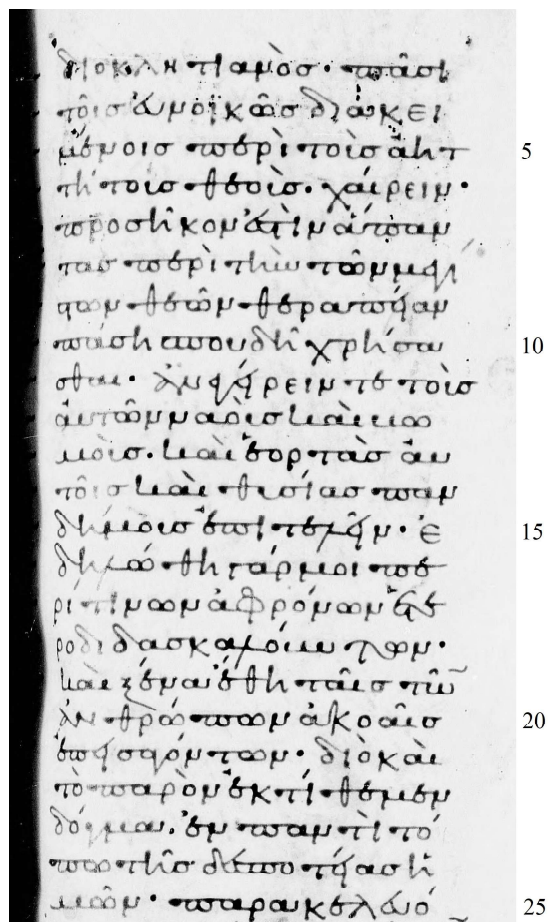 διοκλητιανὸσ· πᾶσι
τοῖσ εὐνοϊκῶσ διακει
μένοισ περὶ τοὺσ ἀητ 5
τήτουσ θεοὺσ· χαίρειν·
προσῆκον ἐστὶν ἅπαν
τασ περὶ τὴν τῶν μεγί
στων θεῶν θεραπείαν
πάση σπουδῆ χρήσα 10
σθαι· ἀνεγείρειν τὲ τοὺσ
αὐτῶν ναοὺσ καὶ βω
μοὺσ· καὶ ἑορτὰσ αὐ
τοῖσ καὶ θυσίασ παν
δήμουσ ἐπιτελεῖν· ἐ 15
δηλώθη γάρ μοι πε
ρί τινων ἀφρόνων ἑτε
ροδιδασκαλούντων·
καὶ ξένα ἔθη ταῖσ τῶν
ἀνθρώπων ἀκοαῖσ 20
ἐπεισαγόντων· διὸ καὶ
τὸ παρὸν ἐκτίθεμεν
δόγμα· ἐν παντὶ τό
πω τῆσ δεσποτείασ ἡ
μῶν· παρακελευό 25